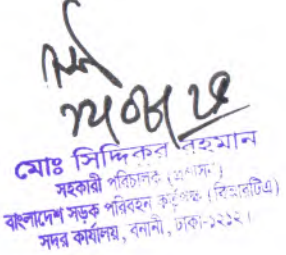 মোঃ সিদ্দিকুর রহমান
সহকারী পরিচালক (প্রশাসন)
বাংলাদেশ সড়ক পরিবহন কর্তৃপক্ষ (বিআরটিএ)
সদর কার্যালয়, বনানী, ঢাকা-১২১২।